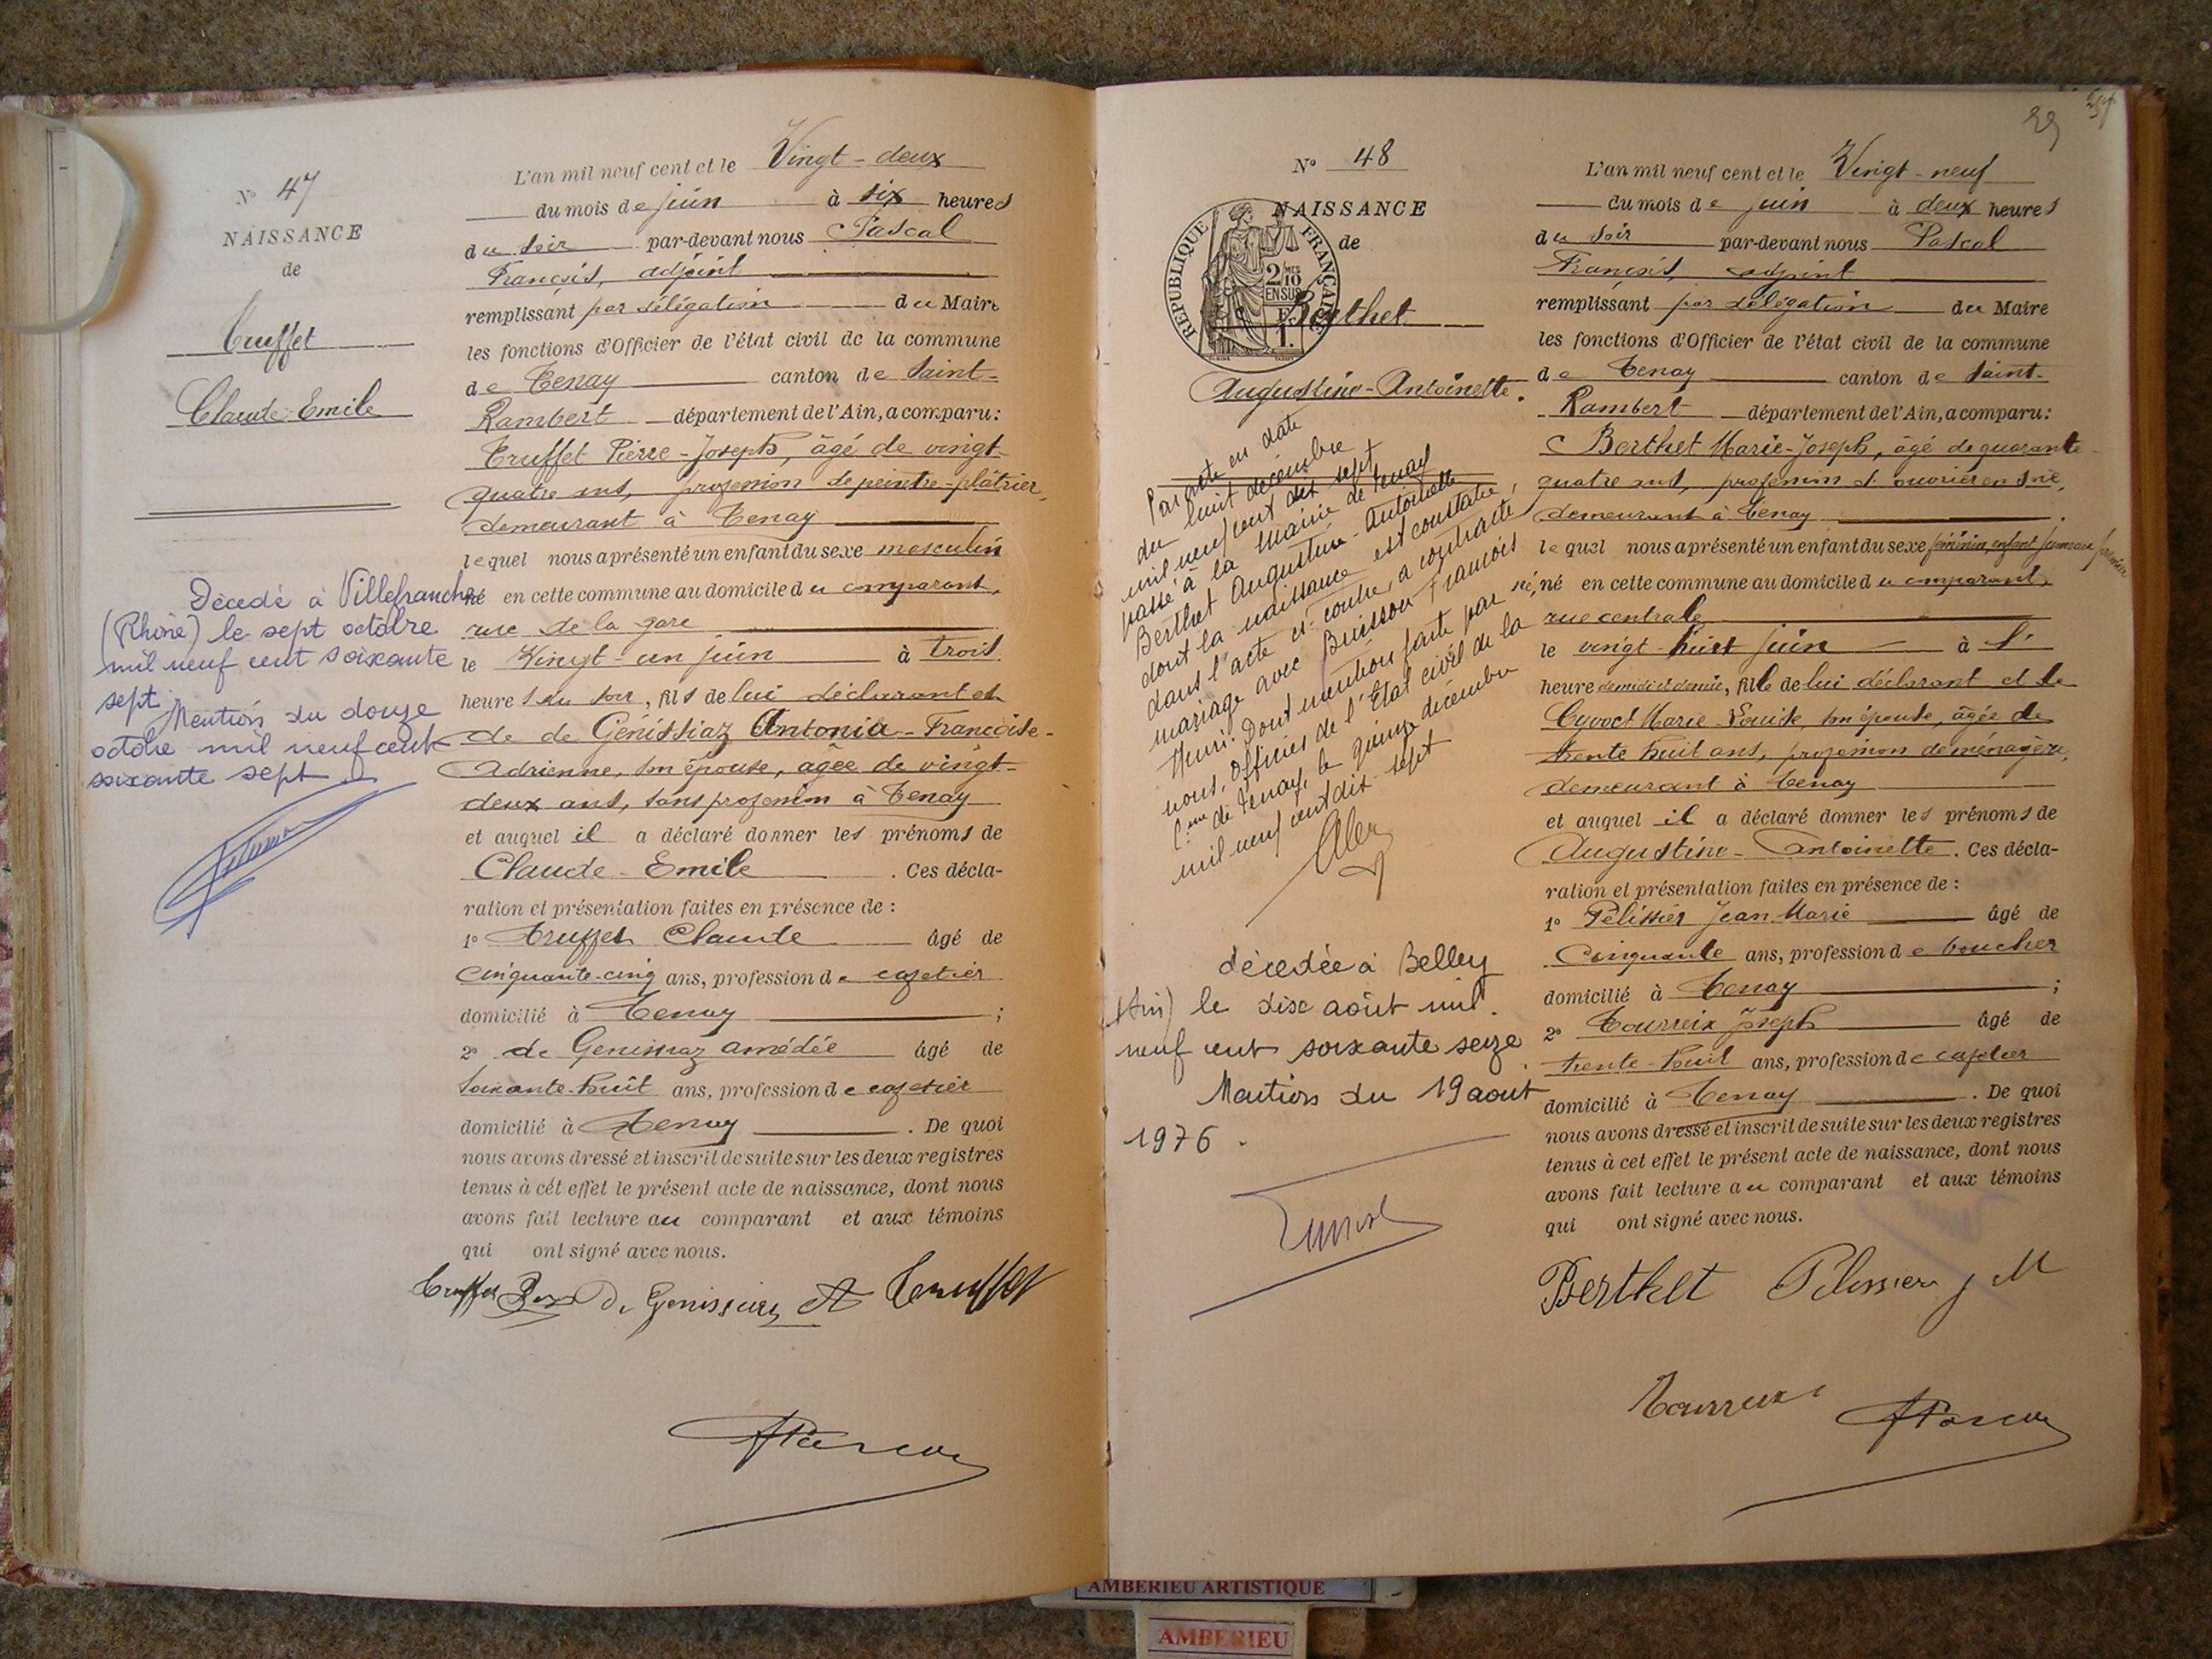 N° 47
NAISSANCE
de
Truffet
Claude-Emile
Décédé à Villefranche
(Rhône) le sept octobre
mil neuf cent soixante
sept
Mention du douze
octobre mil neuf cent
soixante sept
L'an mil neuf cent et le Vingt-deux
du mois de juin à six heures
du soir par-devant nous Pascal
François, adjoint
remplissant par délégation du Maire
les fonctions d'Officier de l'état civil de la commune
de Tenay canton de Saint-
Rambert département de l'Ain, a comparu:
Truffet Pierre-Joseph, âgé de vingt-
quatre ans, profession de peintre-plâtrier,
demeurant à Tenay
lequel nous a présenté un enfant du sexe masculin
né en cette commune au domicile du comparant,
rue de la gare
le Vingt-un juin à trois
heures du soir, fils de lui déclarant et
de de Génissiaz Antonia-Françoise-
Adrienne, son épouse, âgée de vingt-
deux ans, sans profession à Tenay
et auquel il a déclaré donner les prénoms de
Claude-Emile. Ces décla-
ration et présentation faites en présence de :
1° Truffet Claude âgé de
cinquante-cinq ans, profession de cafetier
domicilié à Tenay ;
2° de Genissiaz Amédée âgé de
soixante-huit ans, profession de cafetier
domicilié à Tenay. De quoi
nous avons dressé et inscrit de suite sur les deux registres
tenus à cet effet le présent acte de naissance, dont nous
avons fait lecture au comparant et aux témoins
qui ont signé avec nous.
Truffet De Genissiaz Truffet
Pascal
29
N° 48
NAISSANCE
de
RÉPUBLIQUE FRANÇAISE
2/10 MES
EN SUS
1 F.
Berthet
Augustine-Antoinette.
Par acte en date
du huit décembre
mil neuf cent dix sept
passé à la mairie de Tenay
Berthet Augustine-Antoinette
dont la naissance est constatée,
dans l'acte ci-contre a contracté
mariage avec Buisson François
Henri. Dont mention faite par
nous, officier de l'Etat civil de la
Cne de Tenay, le quinze décembre
mil neuf cent dix-sept
décédée à Belley
(Ain) le dix août mil
neuf cent soixante seize
Mention du 19 aout
1976.
L'an mil neuf cent et le Vingt-neuf
du mois de juin à deux heures
du soir par-devant nous Pascal
François, adjoint
remplissant par délégation du Maire
les fonctions d'Officier de l'état civil de la commune
de Tenay canton de Saint-
Rambert département de l'Ain, a comparu:
Berthet Marie-Joseph, âgé de quarante-
quatre ans, profession d'ouvrier en soie,
demeurant à Tenay
lequel nous a présenté un enfant du sexe féminin, enfant jumeau premier
né, né en cette commune au domicile du comparant,
rue centrale
le vingt-huit juin à l'
heure de midi et demie, fille de lui déclarant et de
Cyvoct Marie-Louise, son épouse, âgée de
trente huit ans, profession de ménagère,
demeurant à Tenay
et auquel il a déclaré donner les prénoms de
Augustine-Antoinette. Ces décla-
ration et présentation faites en présence de :
1° Pélissier Jean-Marie âgé de
Cinquante ans, profession de boucher
domicilié à Tenay ;
2° Tourreix Joseph âgé de
trente-huit ans, profession de cafetier
domicilié à Tenay. De quoi
nous avons dressé et inscrit de suite sur les deux registres
tenus à cet effet le présent acte de naissance, dont nous
avons fait lecture au comparant et aux témoins
qui ont signé avec nous.
Berthet Pelissier J M
Tourreix Pascal
AMBERIEU ARTISTIQUE
AMBERIEU